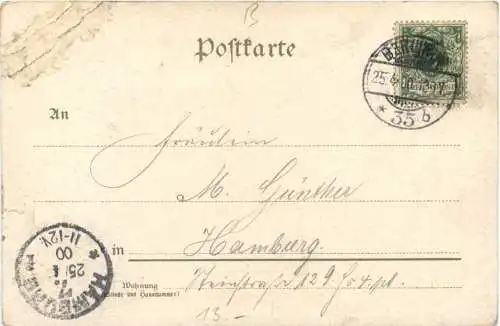 B
Postkarte
BERLIN
25.4.00
* 35 b
An
Fräulein
M. Günther
in Hamburg.
Wohnung
(Straße und Hausnummer)
Steinstrasse 129
13.-
HAMBURG
25 4
00
11-12V.
*